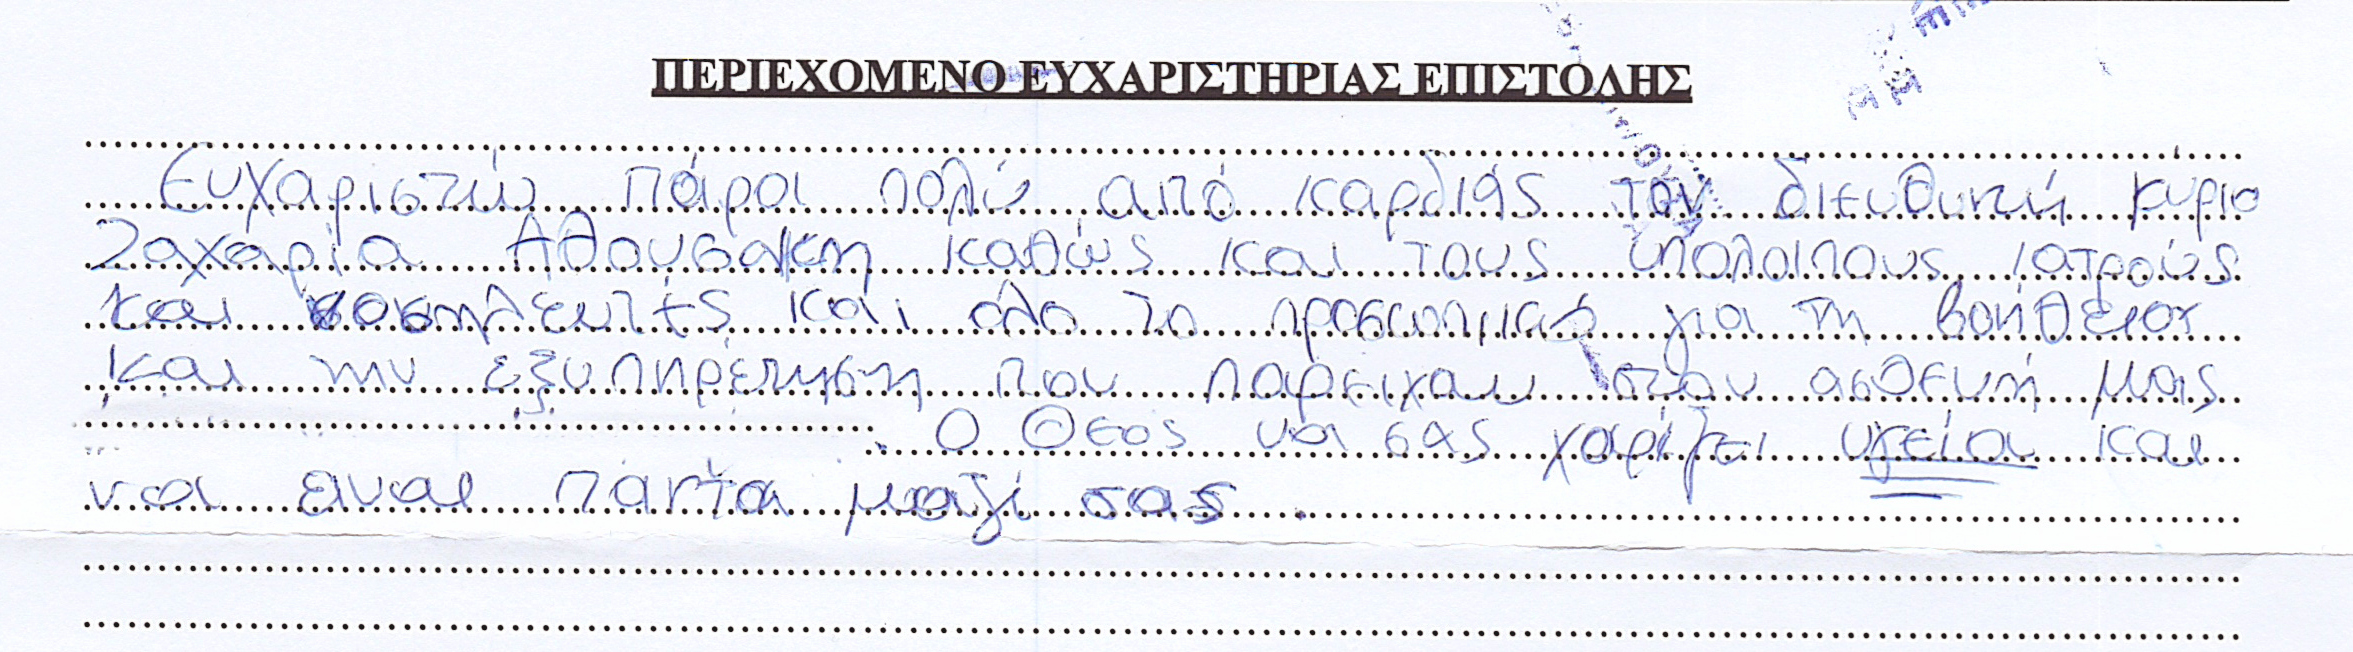 ΠΕΡΙΕΧΟΜΕΝΟ ΕΥΧΑΡΙΣΤΗΡΙΑΣ ΕΠΙΣΤΟΛΗΣ
Ευχαριστώ πάρα πολύ από καρδιάς τον διευθυντή κύριο
Ζαχαρία Αθουσάκη καθώς και τους υπόλοιπους ιατρούς
και νοσηλευτές και όλο το προσωπικό για τη βοήθεια
και την εξυπηρέτηση που παρείχαν στον ασθενή μας
. Ο Θεός να σας χαρίζει υγεία και
να ειναι παντα μαζί σας .